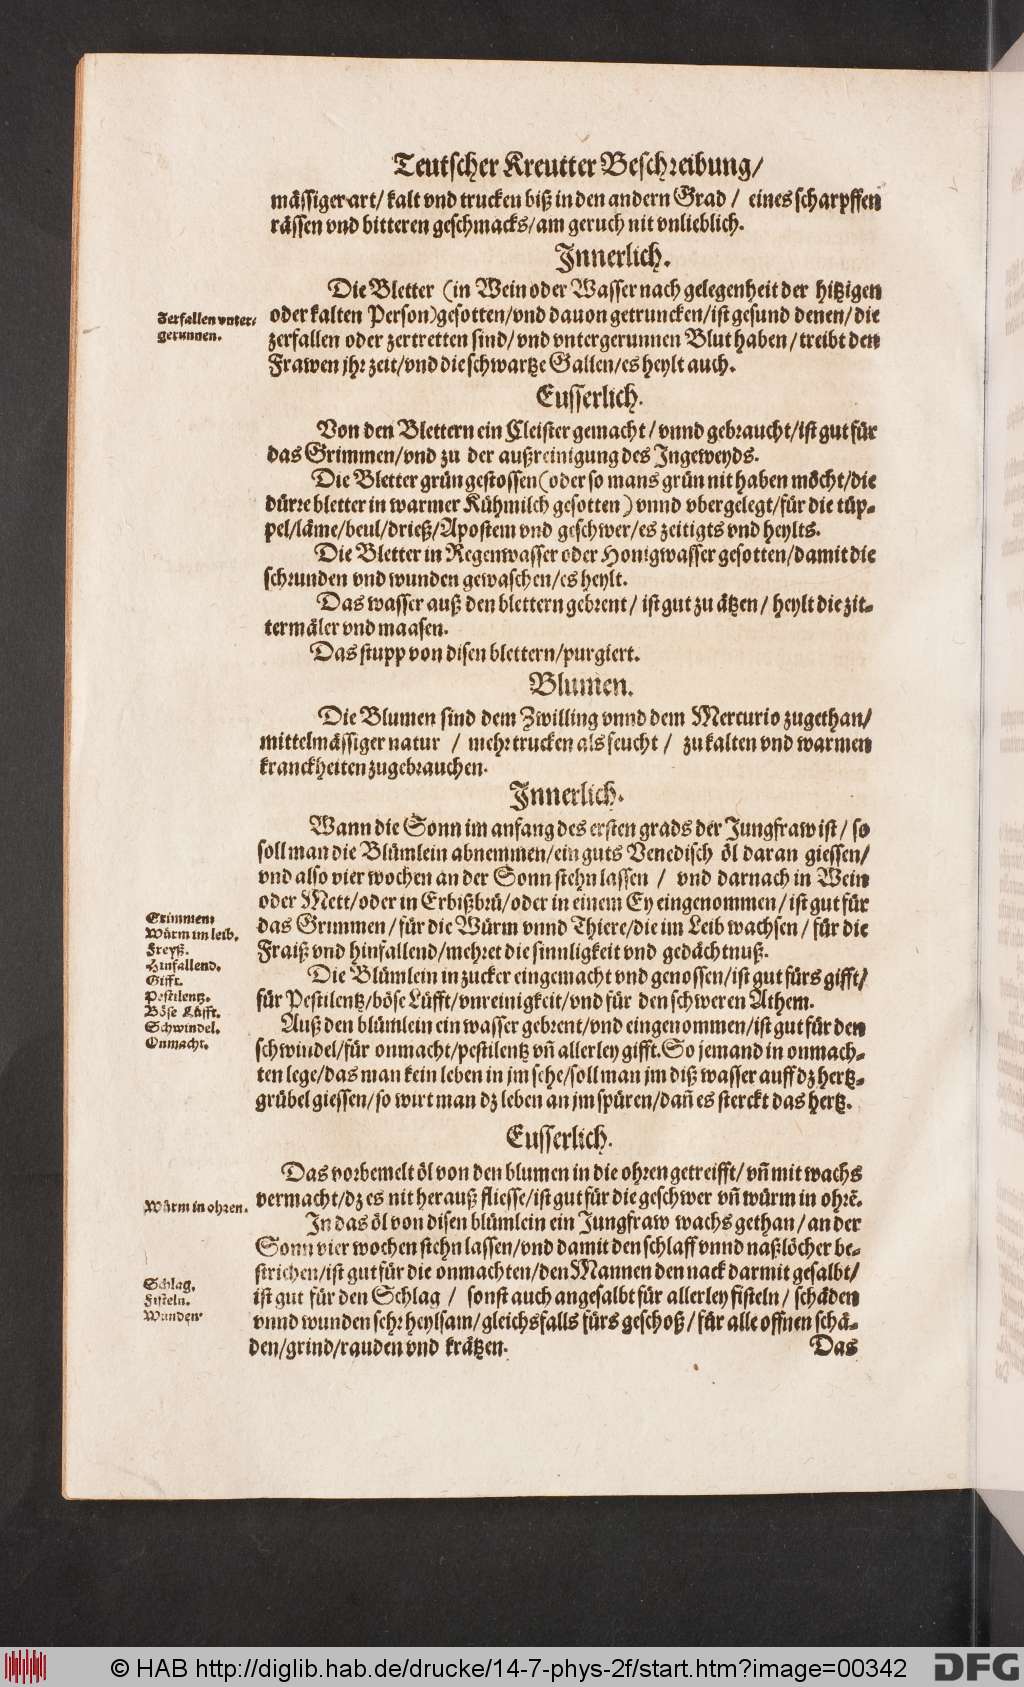 Teutscher Kreutter Beschreibung/
mässiger art/ kalt vnd trucken biß in den andern Grad / eines scharpffen
rässen vnd bitteren geschmacks/am geruch nit vnlieblich.
Innerlich.
Die Bletter (in Wein oder Wasser nach gelegenheit der hitzigen
Zerfallen vnter-
oder kalten Person)gesotten/vnd dauon getruncken/ist gesund denen/die
gerunnen.
zerfallen oder zertretten sind/vnd vntergerunnen Blut haben/treibt den
Frawen jhr zeit/vnd die schwartze Gallen/es heylt auch.
Eusserlich.
Von den Blettern ein Cleister gemacht/vnnd gebraucht/ist gut für
das Grimmen/vnd zu der außreinigung des Ingeweyds.
Die Bletter grün gestossen(oder so mans grün nit haben möcht/die
dürre bletter in warmer Kühmilch gesotten) vnnd vbergelegt/für die tüp-
pel/läme/beul/drieß/Apostem vnd geschwer/es zeitigts vnd heylts.
Die Bletter in Regenwasser oder Honigwasser gesotten/damit die
schrunden vnd wunden gewaschen/es heylt.
Das wasser auß den blettern gebrent/ ist gut zu ätzen/ heylt die zit-
termäler vnd maasen.
Das stupp von disen blettern/purgiert.
Blumen.
Die Blumen sind dem Zwilling vnnd dem Mercurio zugethan/
mittelmässiger natur / mehr trucken als feucht / zu kalten vnd warmen
kranckheiten zugebrauchen.
Innerlich.
Wann die Sonn im anfang des ersten grads der Jungfraw ist/ so
soll man die Blümlein abnemmen/ein guts Venedisch öl daran giessen/
vnd also vier wochen an der Sonn stehn lassen / vnd darnach in Wein
oder Mett/oder in Erbißbrü/oder in einem Ey eingenommen/ist gut für
Grimmen.
das Grimmen/für die Würm vnnd Thiere/die im Leib wachsen/ für die
Würm im leib.
Fraiß vnd hinfallend/mehret die sinnligkeit vnd gedächtnuß.
Freyß.
Hinfallend.
Die Blümlein in zucker eingemacht vnd genossen/ist gut fürs gifft/
Gifft.
Pestilentz.
für Pestilentz/böse Lüfft/vnreinigkeit/vnd für den schweren Athem.
Böse Lüfft.
Auß den blümlein ein wasser gebrent/vnd eingenommen/ist gut für den
Schwindel.
Onmacht.
schwindel/für onmacht/pestilentz vñ allerley gifft.So jemand in onmach-
ten lege/das man kein leben in jm sehe/soll man jm diß wasser auff dz hertz-
grübel giessen/so wirt man dz leben an jm spüren/dañ es sterckt das hertz.
Eusserlich.
Das vorbemelt öl von den blumen in die ohren getreifft/vñ mit wachs
Würm in ohren.
vermacht/dz es nit herauß fliesse/ist gut für die geschwer vñ würm in ohrē.
In das öl von disen blümlein ein Jungfraw wachs gethan/an der
Sonn vier wochen stehn lassen/vnd damit den schlaff vnnd naßlöcher be-
strichen/ist gut für die onmachten/den Mannen den nack darmit gesalbt/
Schlag.
ist gut für den Schlag / sonst auch angesalbt für allerley fisteln/ schäden
Fisteln.
Wunden
vnnd wunden sehr heylsam/gleichsfalls fürs geschoß/für alle offnen schä-
den/grind/rauden vnd krätzen.
Das
© HAB http://diglib.hab.de/drucke/14-7-phys-2f/start.htm?image=00342
DFG